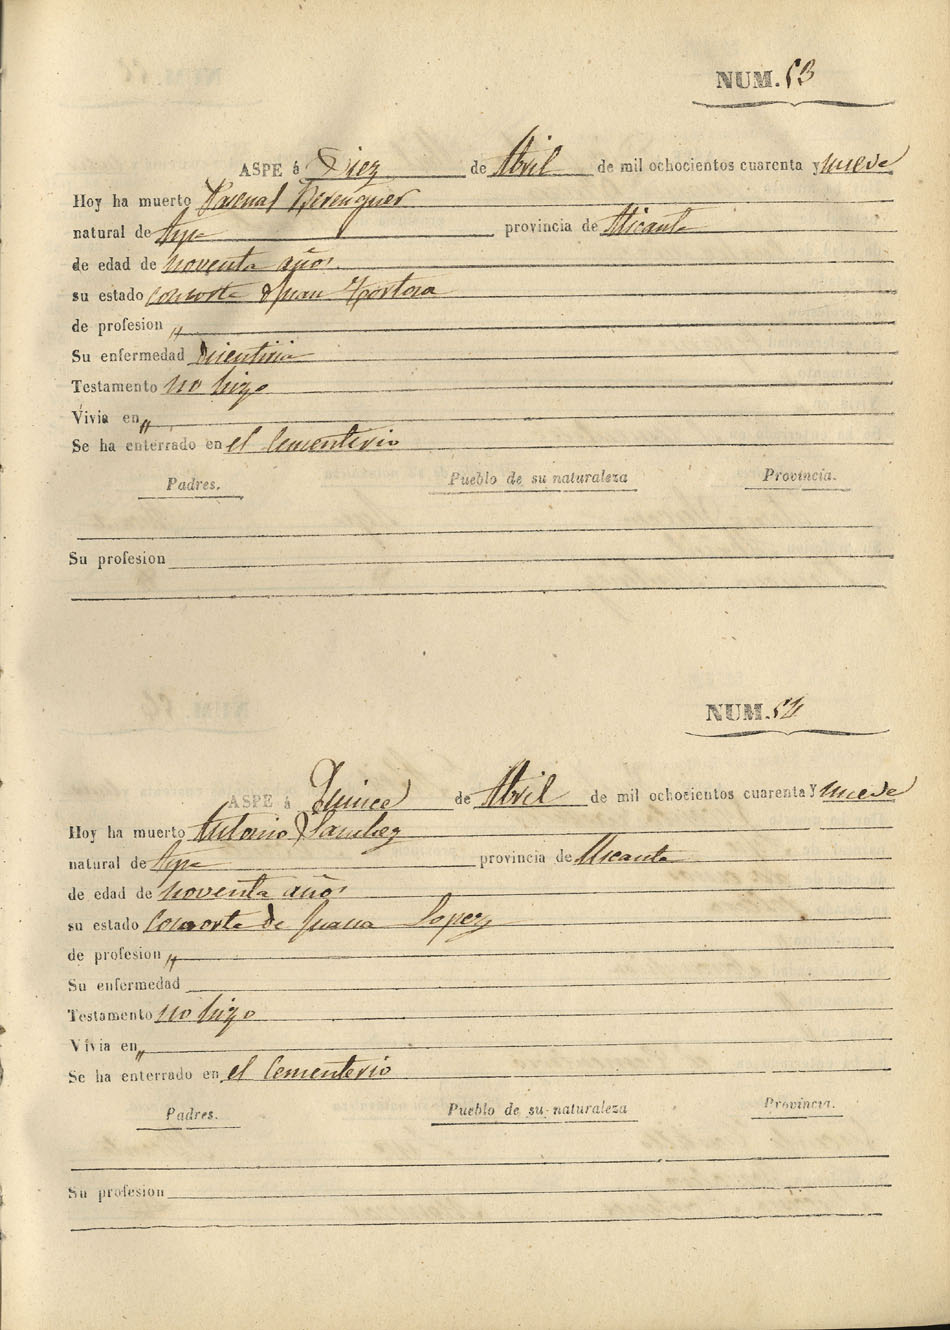 NUM. 53
ASPE á Diez de Abril de mil ochocientos cuarenta y nueve
Hoy ha muerto Pascual Berenguer
natural de Aspe provincia de Alicante
de edad de noventa años
su estado consorte d Juan Tortosa
de profesion „
Su enfermedad
Testamento no hizo
Vivia en „
Se ha enterrado en el Cementerio
Padres. Pueblo de su naturaleza Provincia.
Su profesion
NUM. 54
ASPE á Quince de Abril de mil ochocientos cuarenta Y nueve
Hoy ha muerto Antonio Sanchez
natural de Aspe provincia de Alicante
de edad de noventa años
su estado Consorte de Juana Lopez
de profesion „
Su enfermedad
Testamento no hizo
Vivia en „
Se ha enterrado en el Cementerio
Padres. Pueblo de su naturaleza Provincia.
Su profesion